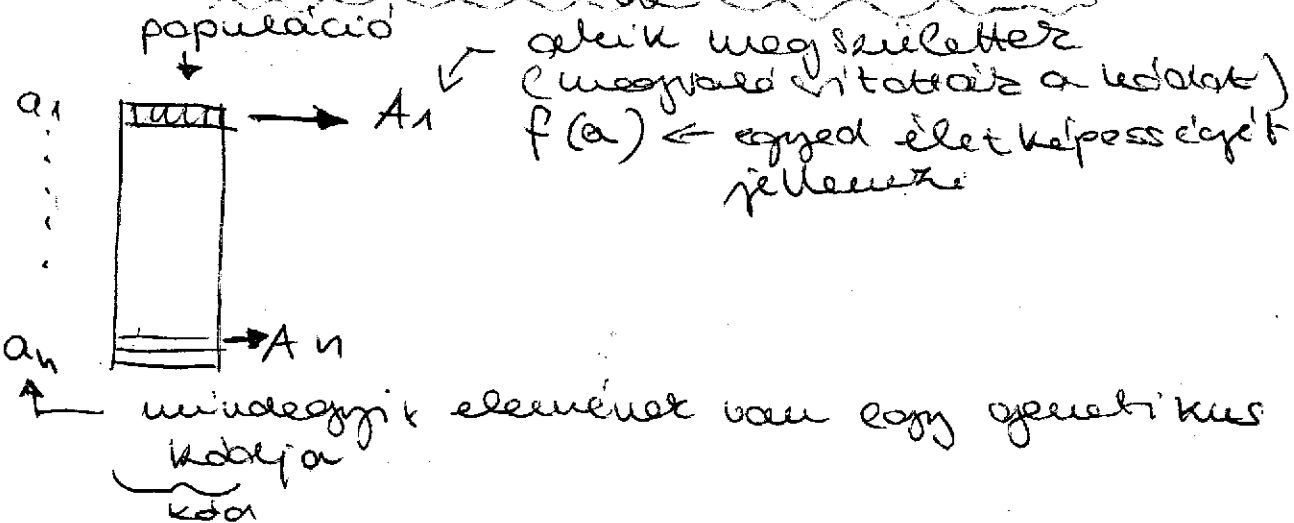 populáció
akik megszülettek
(megvalósították a kódot)
a1 → A1
f(a) ← egyed életképességét
jellemzi
an → An
mindegyik elemének van egy genetikus
kódja
kód